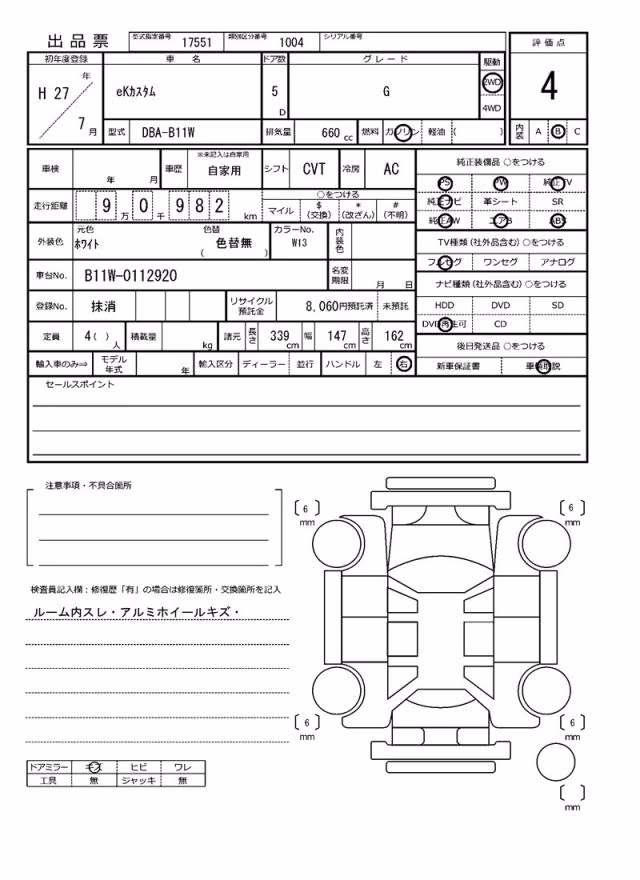 出品票 型式指定番号 17551 類別区分番号 1004 シリアル番号
評価点
4
初年度登録 車名 ドア数 グレード 駆動
H 27 年 7 月 eKカスタム 5 D G 2WD 4WD
型式 DBA-B11W 排気量 660 cc 燃料 ガソリン 軽油 ( ) 内装 A B C
車検 年 月 車歴 ※未記入は自家用 自家用 シフト CVT 冷房 AC
走行距離 9 万 0 千 9 8 2 km ○をつける
マイル $ (交換) * (改ざん) # (不明)
外装色 元色 ホワイト 色替 ( 色替無 ) カラーNo. W13 内装色
車台No. B11W-0112920 名変期限 月 日
登録No. 抹消 リサイクル預託金 8,060円預託済 未預託
定員 4( ) 人 積載量 kg 諸元 長さ 339 cm 幅 147 cm 高さ 162 cm
輸入車のみ⇒ モデル年式 年 輸入区分 ディーラー 並行 ハンドル 左 右
純正装備品 ○をつける
PS PW 純正TV
純正ナビ 革シート SR
純正AW エアB ABS
TV種類(社外品含む) ○をつける
フルセグ ワンセグ アナログ
ナビ種類(社外品含む) ○をつける
HDD DVD SD
DVD再生可 CD
後日発送品 ○をつける
新車保証書 車輌取説
セールスポイント
注意事項・不具合箇所
検査員記入欄:修復歴「有」の場合は修復箇所・交換箇所を記入
ルーム内スレ・アルミホイールキズ・
ドアミラー キズ ヒビ ワレ
工具 無 ジャッキ 無
〔 6 〕 mm
〔 6 〕 mm
〔 6 〕 mm
〔 6 〕 mm
〔 〕 mm